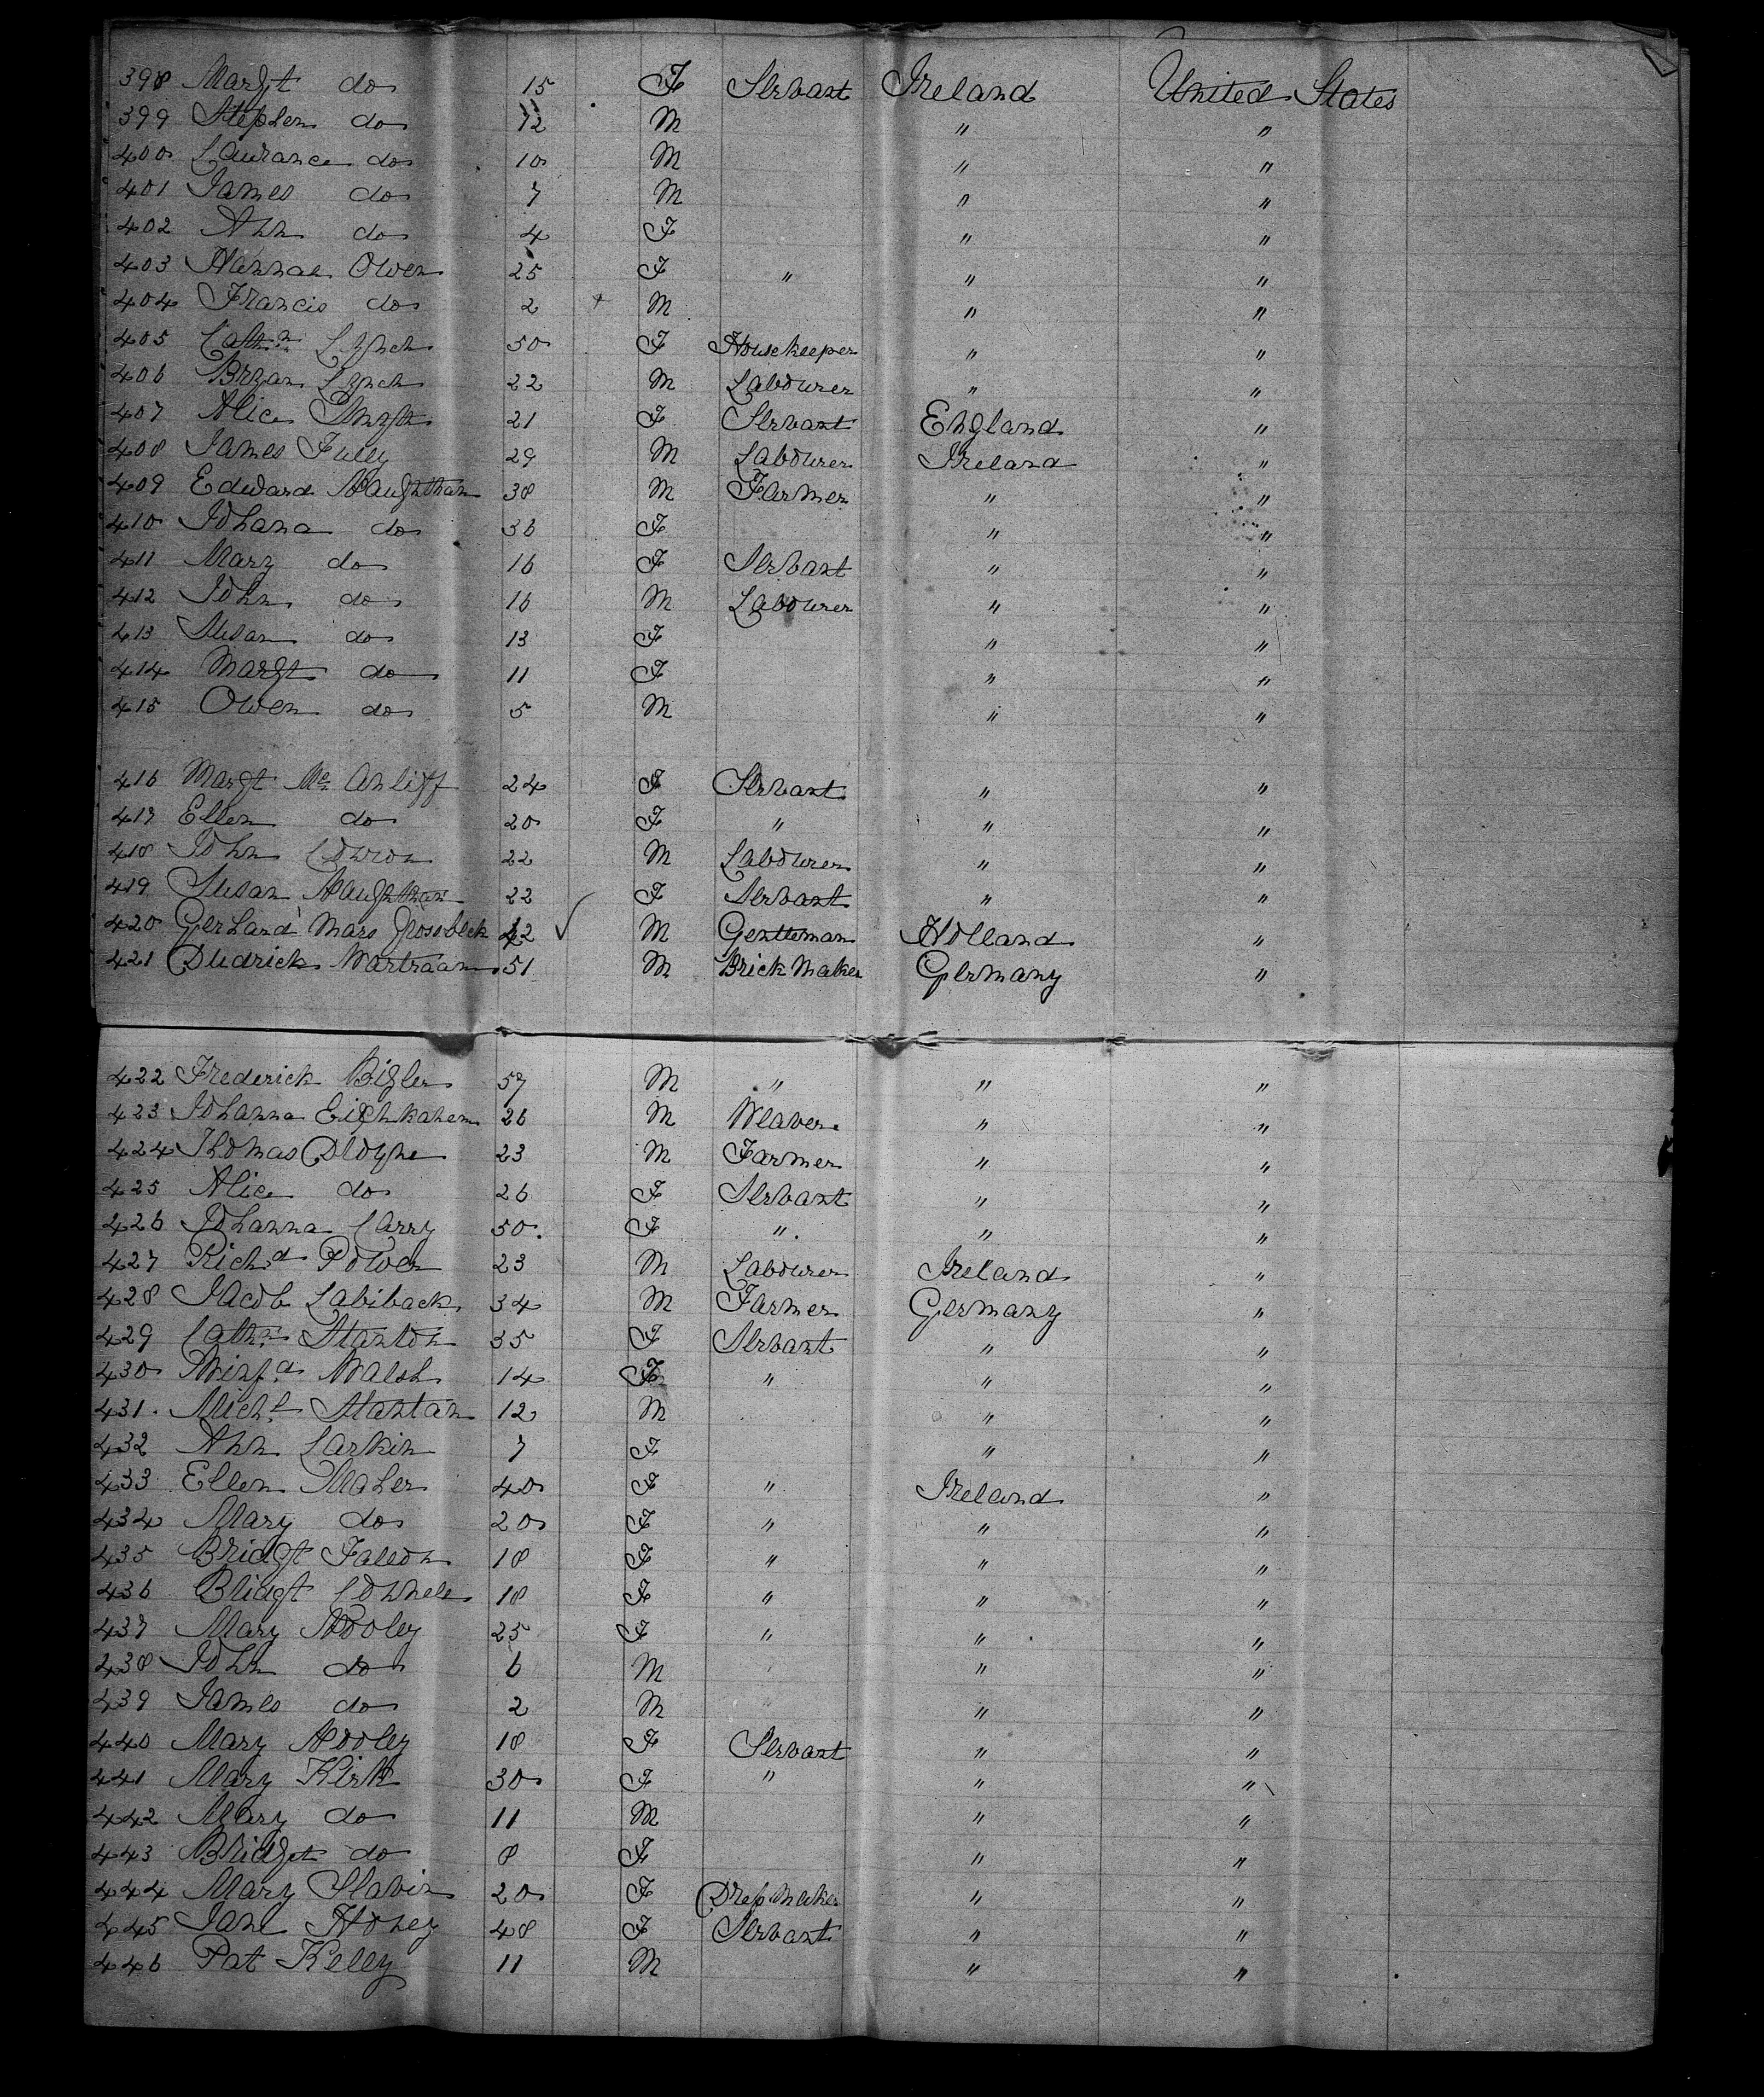 398 Margt do 15 F Servant Ireland United States
399 Stephen do 12 M " "
400 Laurance do 10 M " "
401 James do 7 M " "
402 Ann do 4 F " "
403 Hannah Owen 25 F " " "
404 Francis do 2 + M " "
405 Cathn Lynch 50 F Housekeeper " "
406 Bryan Lynch 22 M Labourer " "
407 Alice Smyth 21 F Servant England "
408 James Fuley 29 M Labourer Ireland "
409 Edward Haughthan 38 M Farmer " "
410 Johana do 36 F " "
411 Mary do 16 F Servant " "
412 John do 16 M Labourer " "
413 Susan do 13 F " "
414 Margt do 11 F " "
415 Owen do 5 M " "
416 Margt Mc Anliff 24 F Servant " "
417 Ellen do 20 F " " "
418 John 22 M Labourer " "
419 Susan Haughthan 22 F Servant " "
420 Gerhard Mars Grossbeck 42 ✓ M Gentleman Holland "
421 Diedrick Wartraam 51 M Brick Maker Germany "
422 Frederick Bigler 57 M " " "
423 Johanna 26 M Weaver " "
424 Thomas Cloyne 23 M Farmer " "
425 Alice do 26 F Servant " "
426 Johanna Carry 50. F ". " "
427 Richd Power 23 M Labourer Ireland "
428 Jacob Labiback 34 M Farmer Germany "
429 Cathn Stanton 35 F Servant " "
430 Winfd Walsh 14 F " " "
431. Michl Stantan 12 M " "
432 Ann Larkin 7 F " "
433 Ellen Maher 40 F " Ireland "
434 Mary do 20 F " " "
435 Bridgt Fallon 18 F " " "
436 Bridgt 18 F " " "
437 Mary Hooley 25 F " " "
438 John do 6 M " "
439 James do 2 M " "
440 Mary Hooley 18 F Servant " "
441 Mary Kirk 30 F " " "
442 Mary do 11 M " "
443 Bridget do 8 F " "
444 Mary Slavin 20 F Dress Maker " "
445 Jane Honey 48 F Servant " "
446 Pat Keley 11 M " "